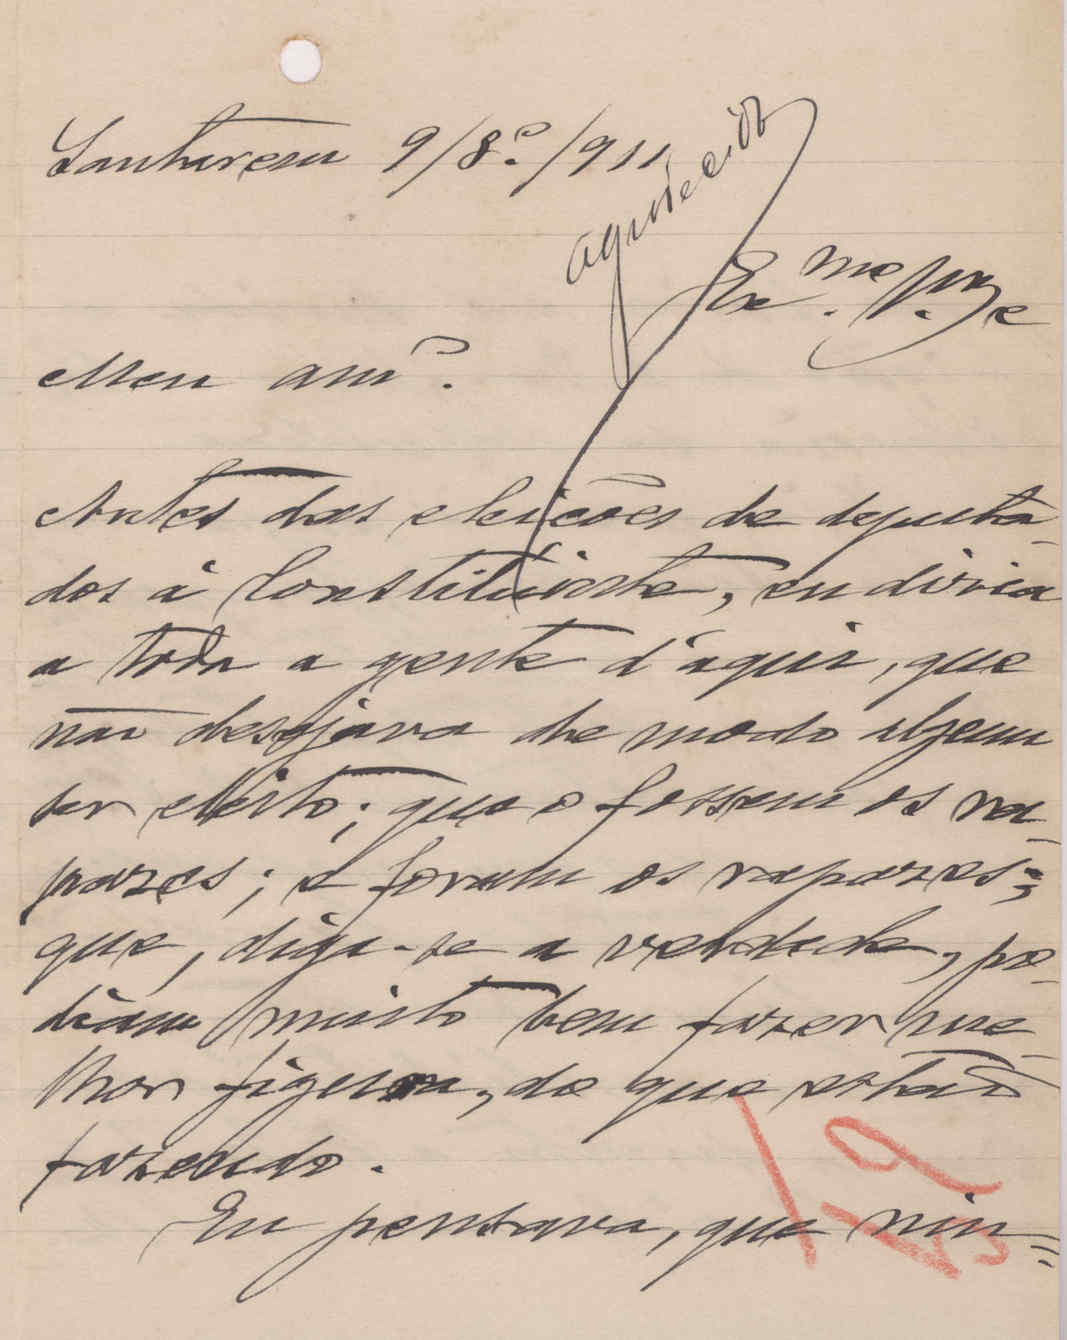 Santarem 9/8º/911
agradecido
Ex.mo
Meu amº.
Antes das eleições de deputa-
dos á Constituinte, eu dizia
a toda a gente d'aqui, que
não desejava de modo algum
ser eleito; que o fossem os ra-
pazes; e foram os rapazes;
que, diga-se a verdade, po-
diam muito bem fazer me-
lhor figura, do que estão
fazendo.
Eu pensava, que nin=